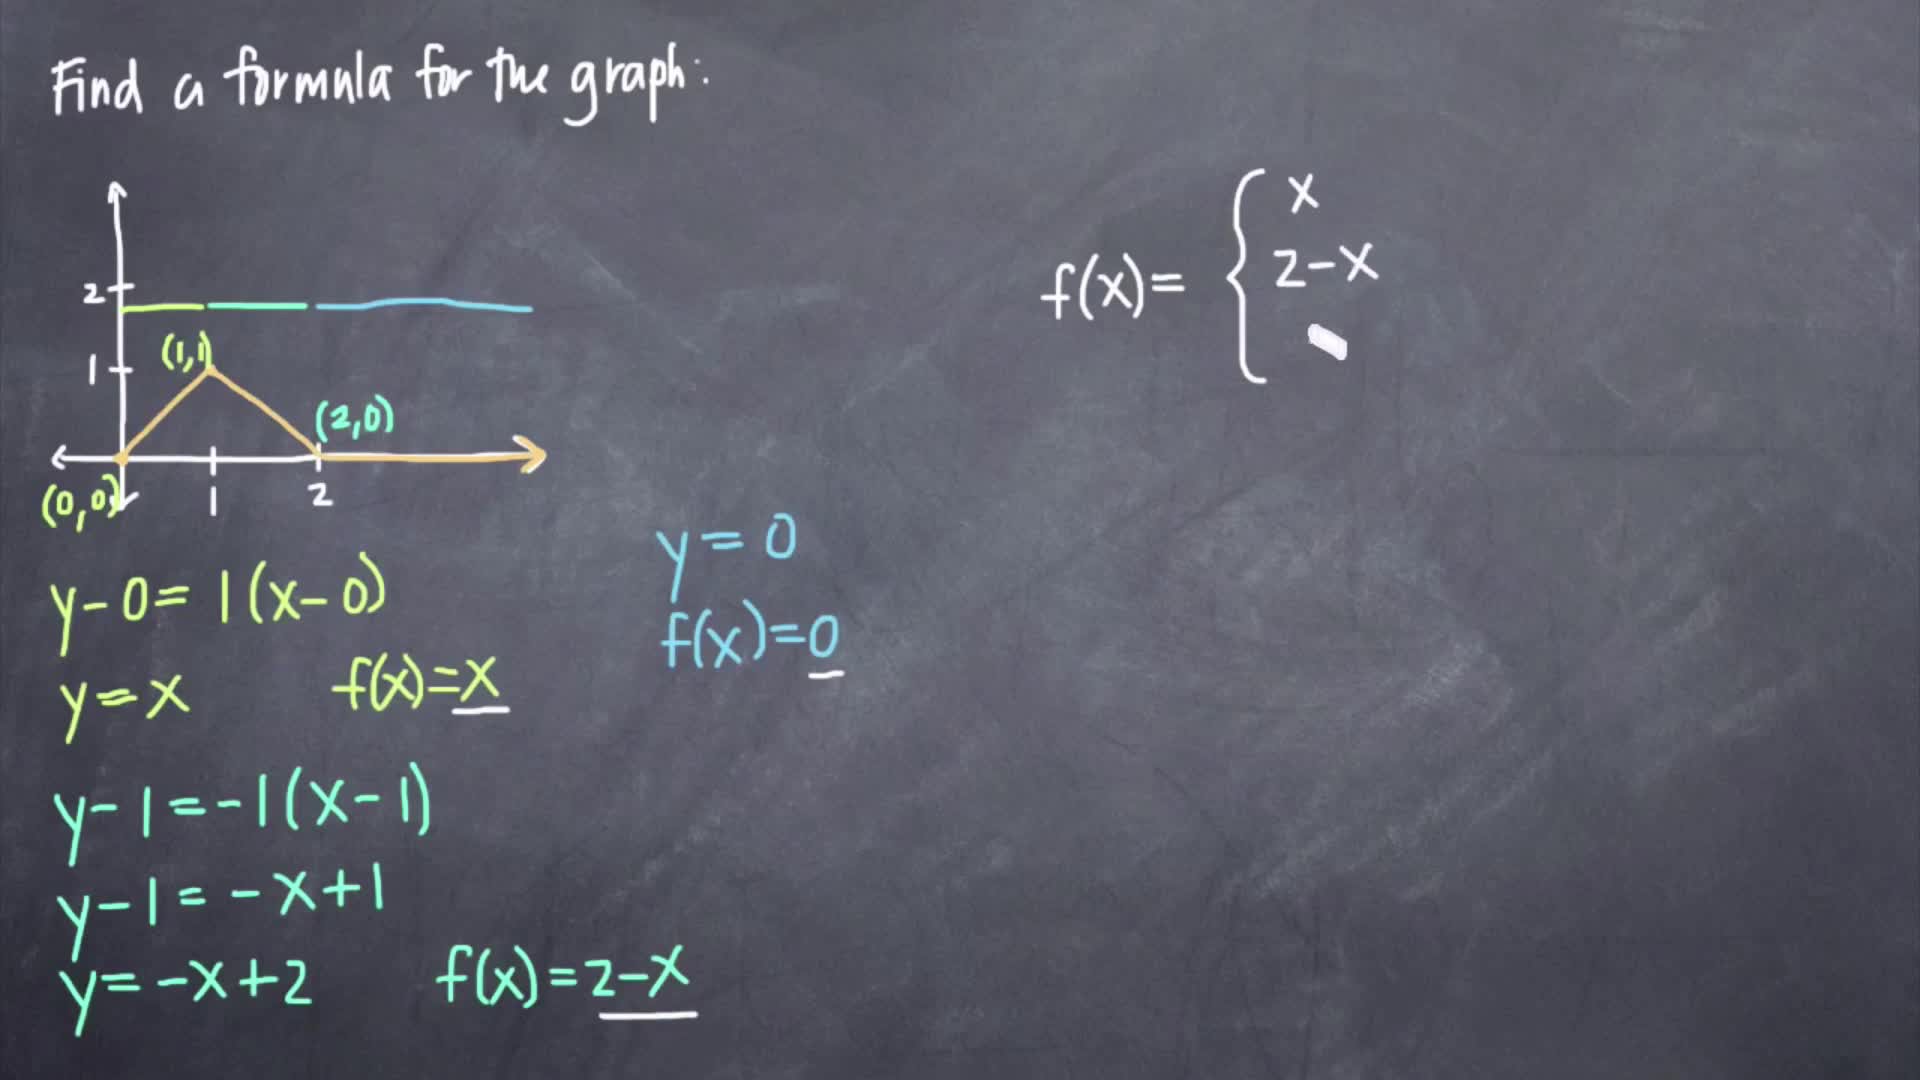 Find a formula for the graph:
2
(1,1)
1
(2,0)
(0,0)
1
2
f(x)= { x
2-x
y-0=1(x-0)
y=x f(x)=x
y-1=-1(x-1)
y-1=-x+1
y=-x+2 f(x)=2-x
y=0
f(x)=0